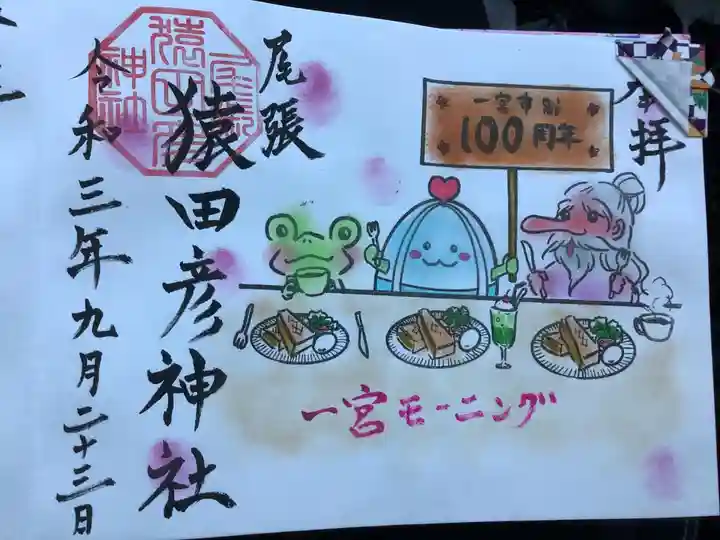 奉拝
一宮市制
100周年
一宮モーニング
尾張
猿田彦神社
令和三年九月二十三日